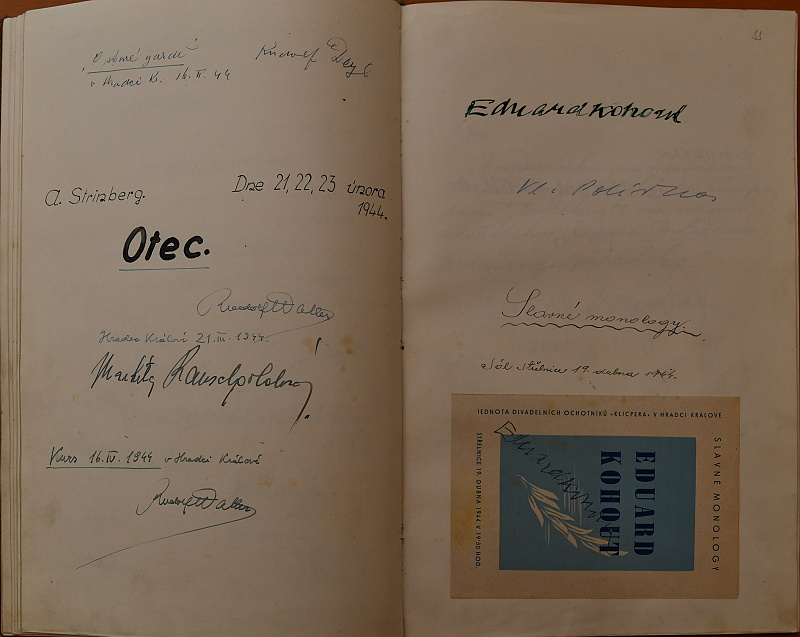 v Hradci Kr. 16. II. 44
Rudolf Deyl
A. Strinberg.
Dne 21, 22, 23 února
1944.
Otec.
Rudolf Walter
Hradec Králové 21. III. 1944.
Markéta
Kurs 16. IV. 1944 v Hradci Králové
Rudolf Walter
33
Eduard Kohout
Slavné monology.
Sál Střelnice 19. dubna 1944.
JEDNOTA DIVADELNÍCH OCHOTNÍKŮ »KLICPERA« V HRADCI KRÁLOVÉ
SLAVNÉ MONOLOGY
EDUARD
KOHOUT
STŘELNICE 19. DUBNA 1944 V 19:30 HOD.
Eduard Kohout